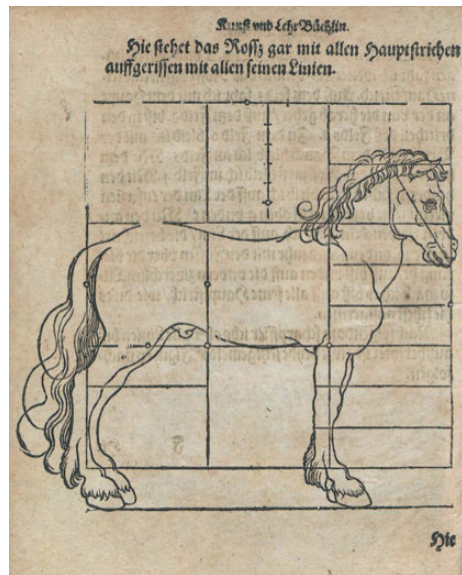 Kunst vnd Lehr Büchlin.
Hie stehet das Rossz gar mit allen Hauptstrichen
auffgerissen mit allen seinen Linien.
Hie